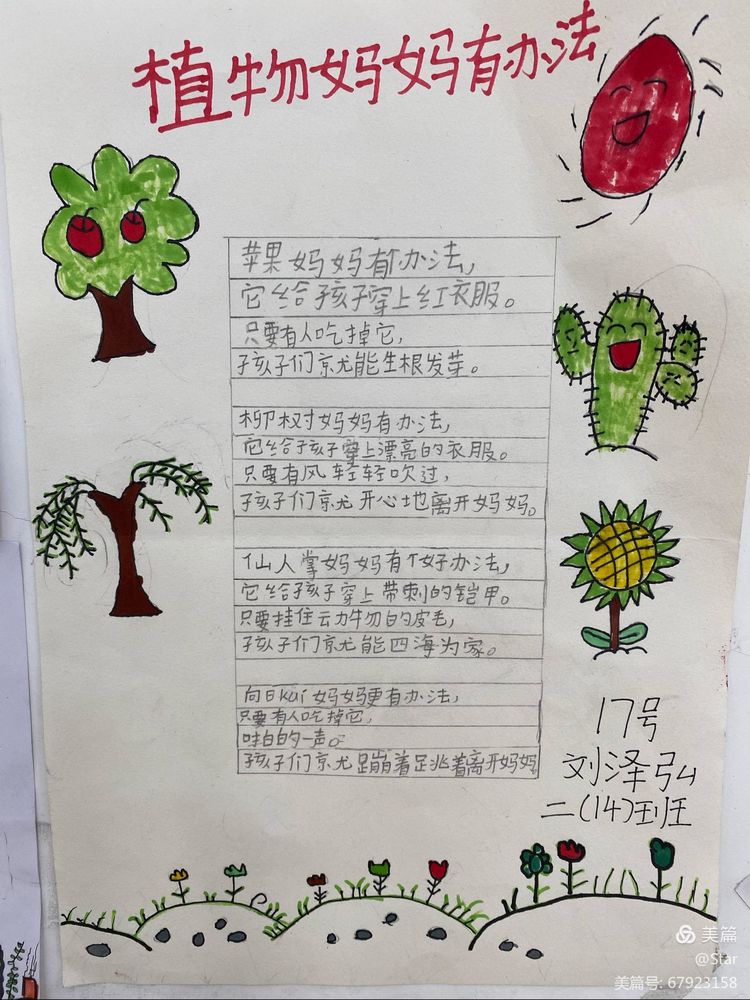 植物妈妈有办法
苹果妈妈有办法，
它给孩子穿上红衣服。
只要有人吃掉它，
孩子们就能生根发芽。
柳树妈妈有办法，
它给孩子穿上漂亮的衣服。
只要有风轻轻吹过，
孩子们就开心地离开妈妈。
仙人掌妈妈有个好办法，
它给孩子穿上带刺的铠甲。
只要挂住动物的皮毛，
孩子们就能四海为家。
向日kuí妈妈更有办法，
只要有人吃掉它，
啪的一声。
孩子们就蹦着跳着离开妈妈
17号
刘泽弘
二(14)班
美篇
@Star
美篇号: 67923158